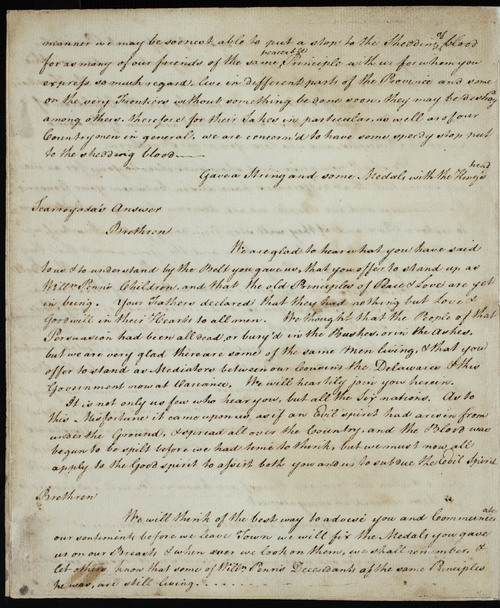 manner we may be soonest able to put a stop to the Sheoding of blood
peaceable
for as many of our freinds of the same Principle with us for whom you
express so much regard, live in different parts of the Province and some
on the very Frontiers without something be done soon, they may be destroy
among others, therefore for their Sakes in particular, as well as of our
Countrymen in general, we are concern'd to have some speedy stop put
to the shedding blood
Gave a String and some Medals with the King's head
Scarroyada's Answer
Brethren
We are glad to hear what you have said
to us & to understand by the Belt you gave us, that you offer to stand up as
Willm Penn's Children, and that the old Principles of Peace & Love are yet
in being. Your Fathers declared that they had nothing but Love &
Goodwill in their Hearts to all men. We thought that the People of that
Persuasion had been all dead, or bury'd in the Bushes, or in the Ashes,
but we are very glad there are some of the same Men living, & that you
offer to stand as Mediators between our Cousins the Delawares & this
Government now at Variance. We will heartily join you herein.
It is not only us few who hear you, but all the Six nations. As to
this Misfortune it came upon us as if an Evil spirit had arisen from
under the Ground, & spread all over the Country, and the Blood was
begun to be spilt before we had time to think, but we must now all
apply to the Good spirit to assist both you and us to subdue the Evil Spirit
Brethren
We will think of the best way to advise you and Communicate
our sentiments before we leave Town we will fix the Medals you gave
us on our Breasts & when ever we look on them, we shall remember, &
let others know that some of Willm Penn's Decendants of the same Principles
he was, are still living.......